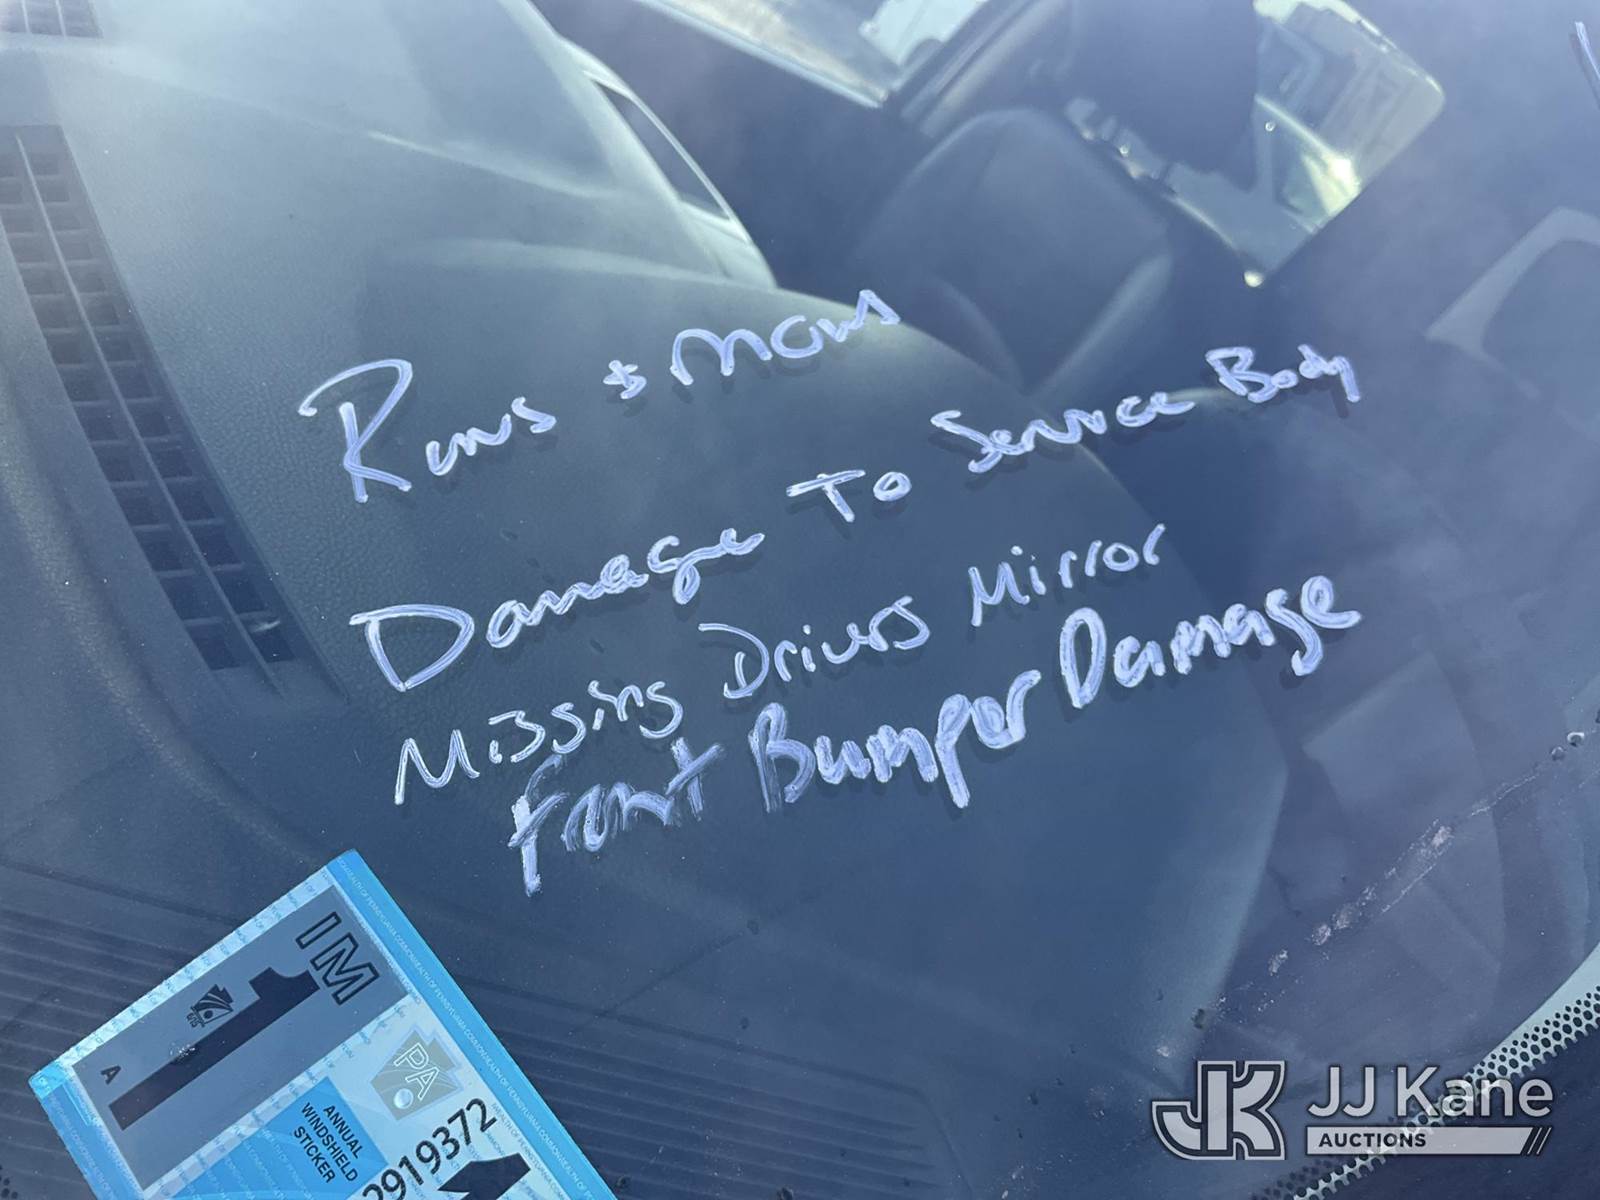 Runs & Moves
Damage To Service Body
Missing Drivers Mirror
front Bumper Damage
IM
A
PA
ANNUAL
WINDSHIELD
STICKER
2919372
JJ Kane
AUCTIONS